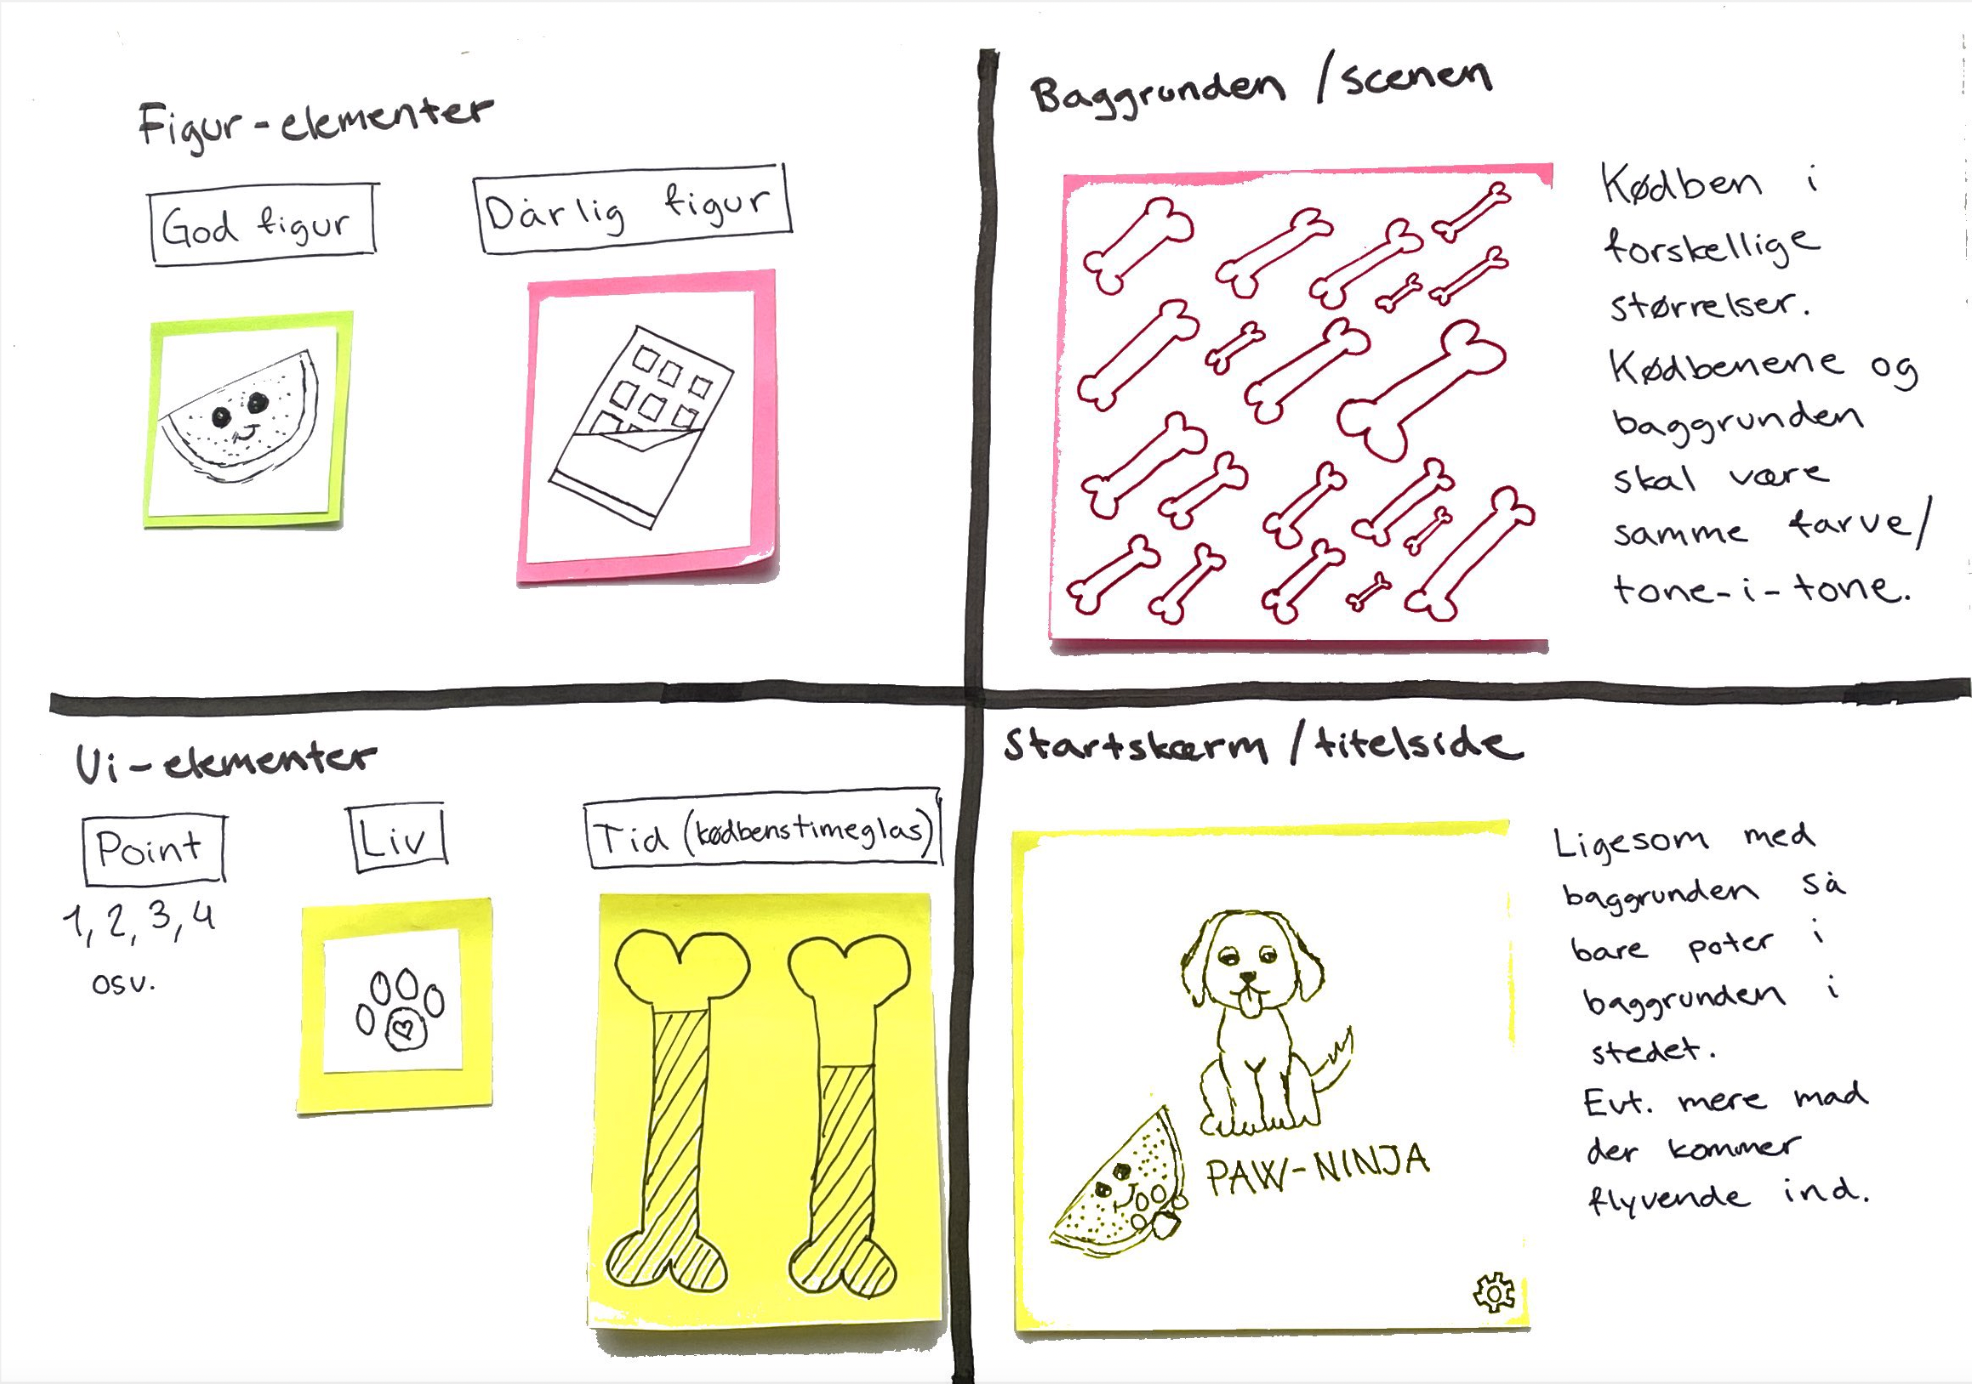 Figur-elementer
God figur
Dårlig figur
Baggrunden /scenen
Kødben i
forskellige
størrelser.
Kødbenene og
baggrunden
skal være
samme farve/
tone-i-tone.
Ui-elementer
Point
1, 2, 3, 4
osv.
Liv
Tid (kødbenstimeglas)
Startskærm /titelside
PAW-NINJA
Ligesom med
baggrunden så
bare poter i
baggrunden i
stedet.
Evt. mere mad
der kommer
flyvende ind.